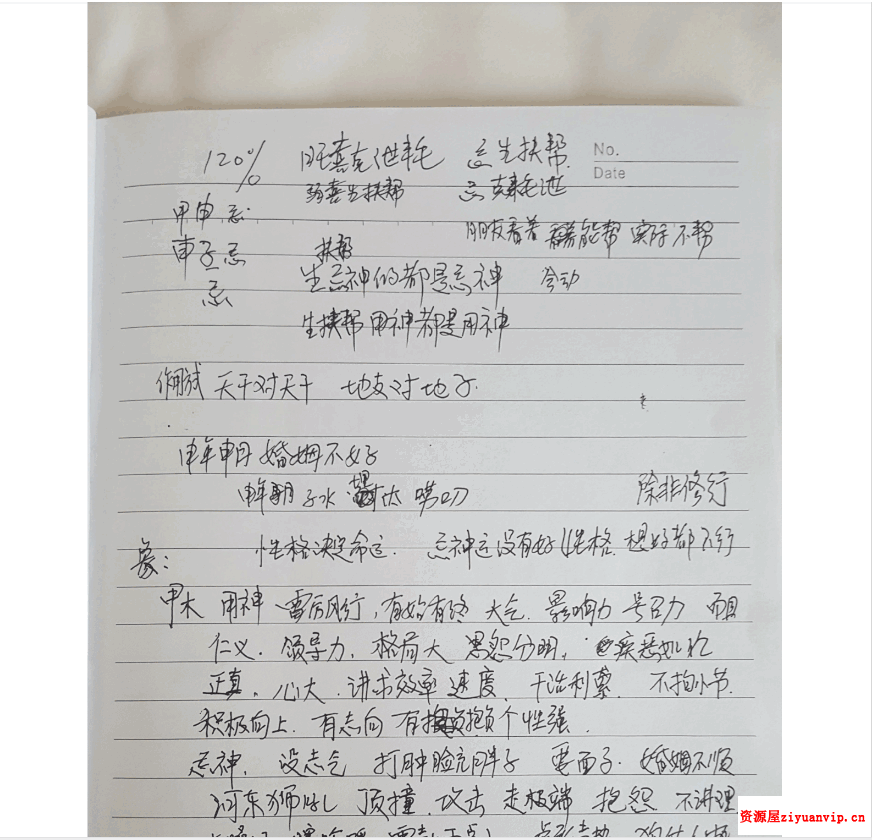 No.
Date
120% 旺喜克泄耗 忌生扶帮
弱喜生扶帮 忌克耗泄
甲申 忌 朋友看着能帮 实际不帮
申子忌 扶帮
忌 生忌神的都是忌神 合动
生扶帮用神都是用神
作用式 天干对天干 地支对地支
申年申月婚姻不好
申年 子水 唠叨 除非修行
象: 性格决定命运. 忌神运没有好性格 想好都不行
甲木 用神 雷厉风行,有始有终 大气. 影响力 号召力
仁义. 领导力. 格局大 恩怨分明, 疾恶如仇
正直. 心大. 讲求效率 速度. 干活利索. 不拘小节.
积极向上. 有志向 有抱负 个性强.
忌神. 没志气 打肿脸充胖子 要面子. 婚姻不顺
河东狮吼 顶撞 攻击 走极端 抱怨 不讲理
资源屋ziyuanvip.cn